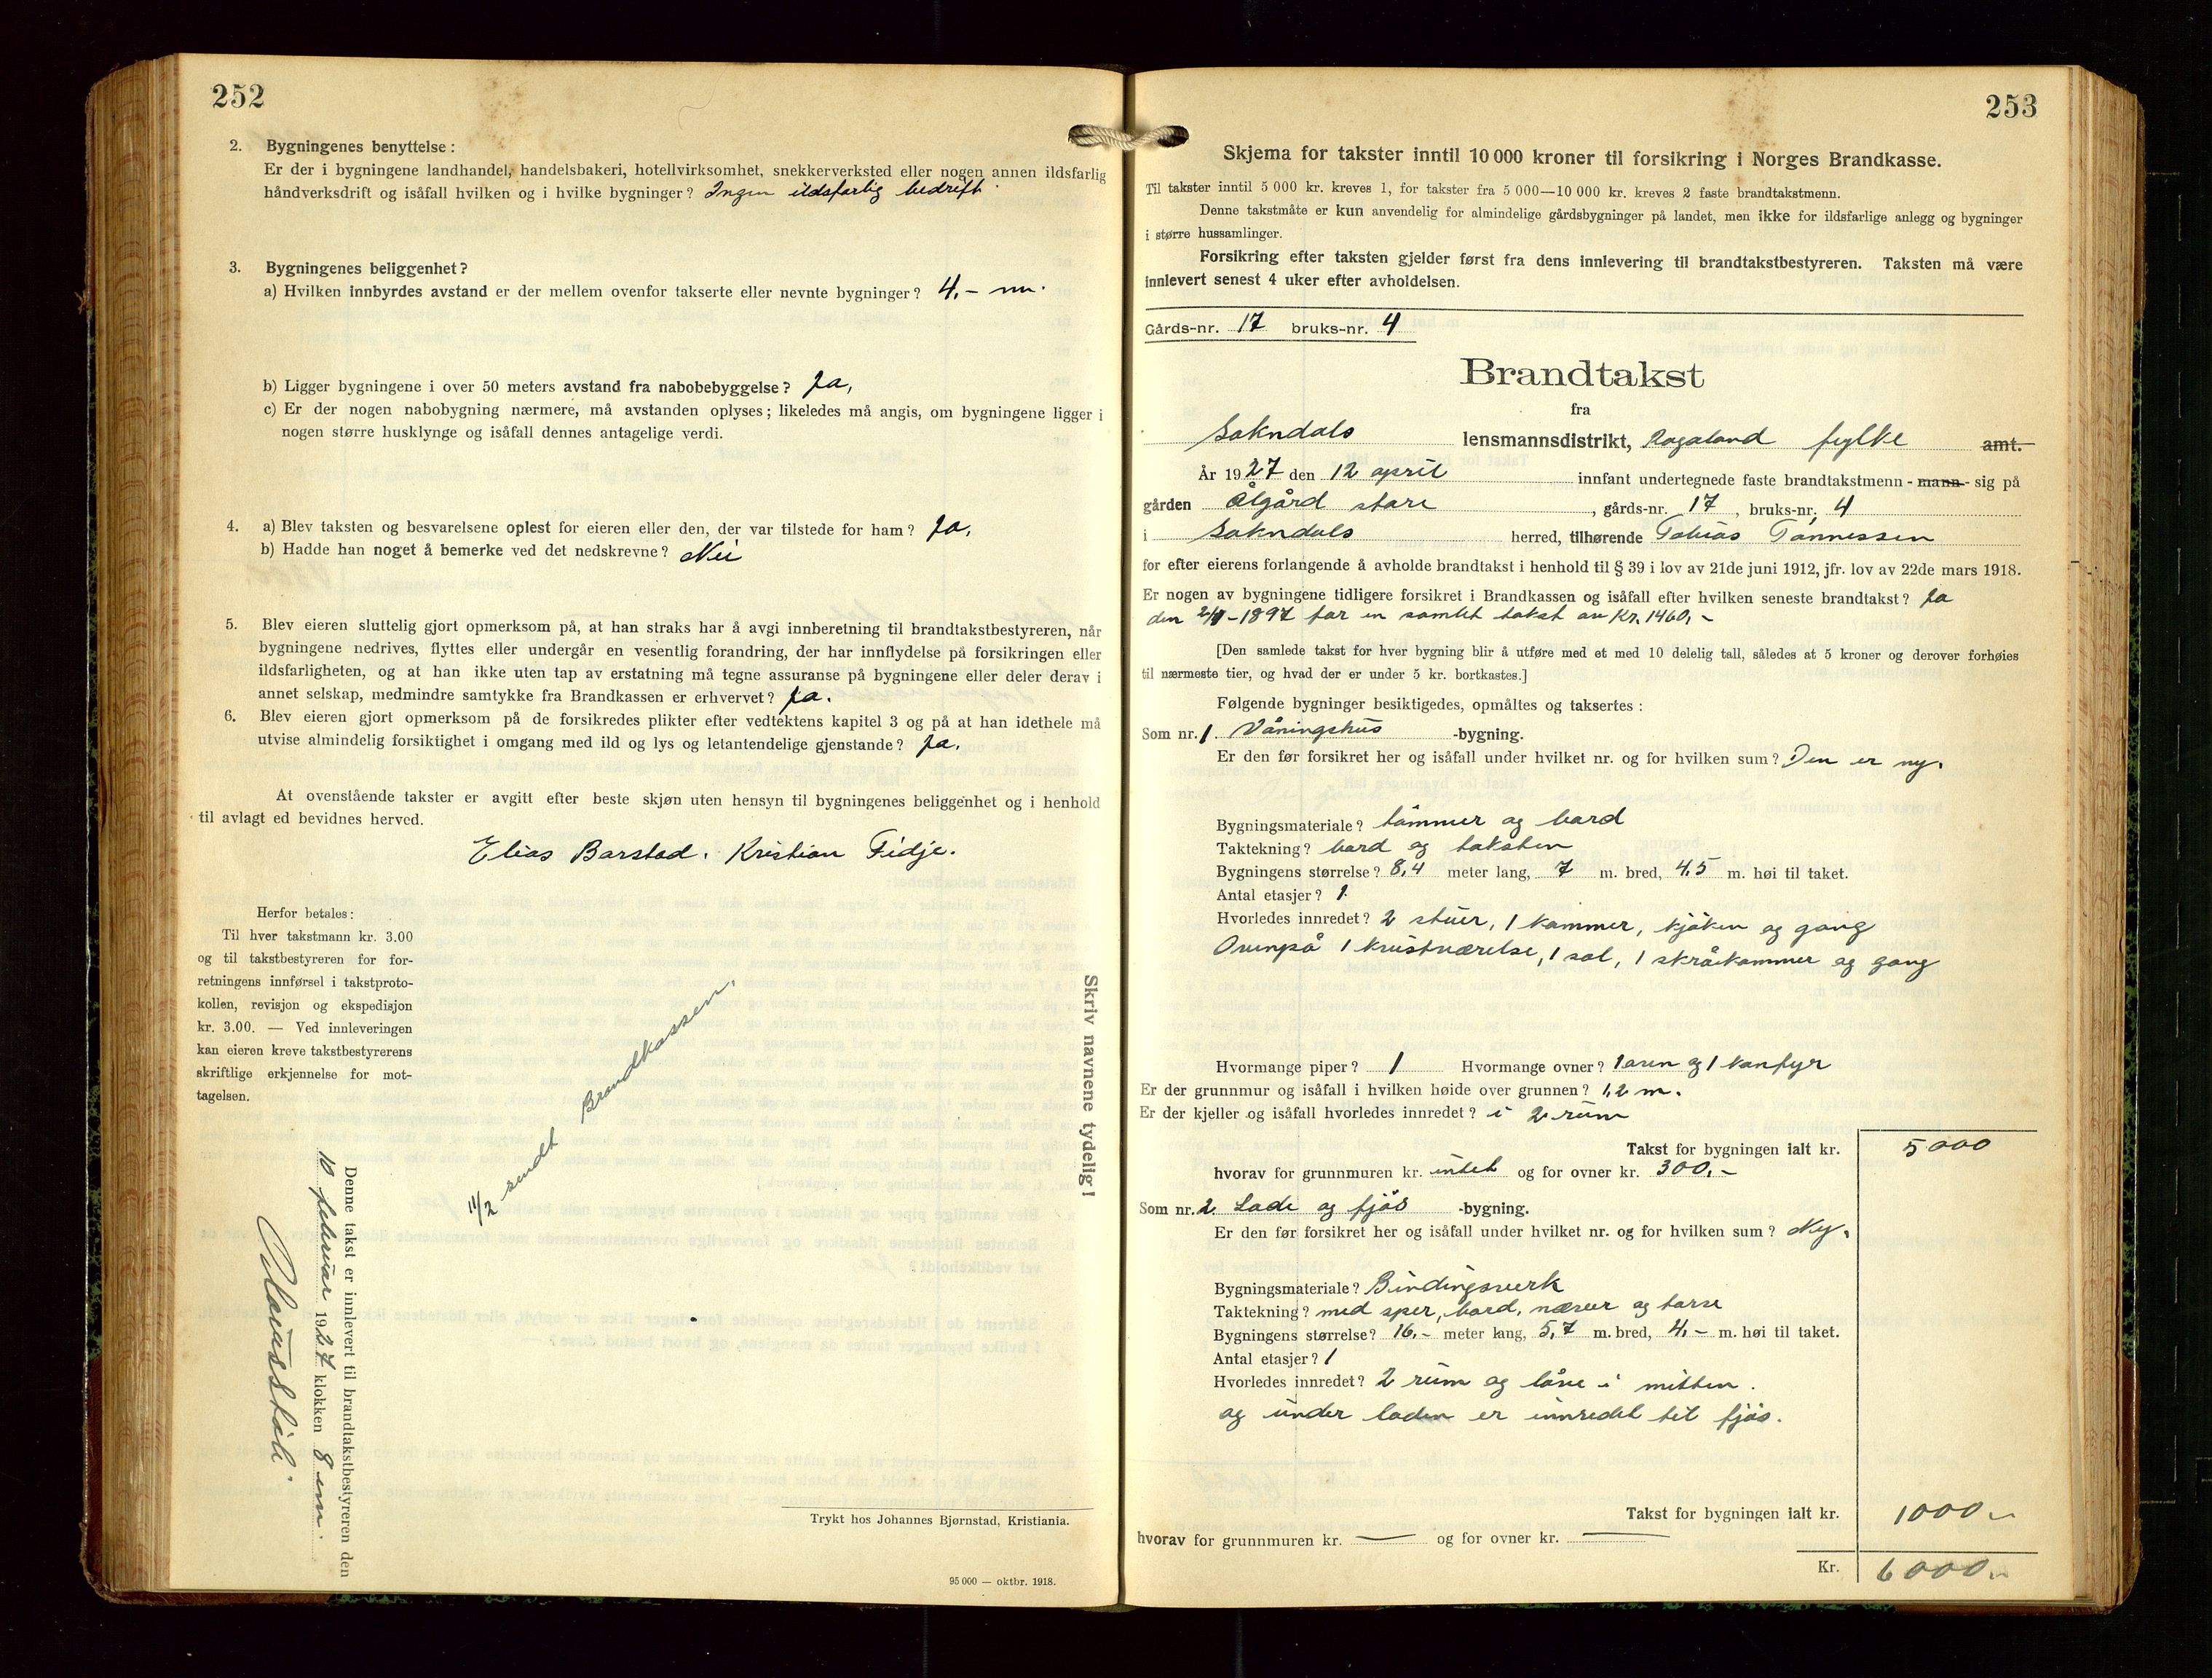 252
2. Bygningenes benyttelse :
Er der i bygningene landhandel, handelsbakeri, hotellvirksomhet, snekkerverksted eller nogen annen ildsfarlig
håndverksdrift og isåfall hvilken og i hvilke bygninger? Ingen ildsfarlig bedrift.
3. Bygningenes beliggenhet?
a) Hvilken innbyrdes avstand er der mellem ovenfor takserte eller nevnte bygninger? 4,- m.
b) Ligger bygningene i over 50 meters avstand fra nabobebyggelse? Ja,
c) Er der nogen nabobygning nærmere, må avstanden oplyses; likeledes må angis, om bygningene ligger i
nogen større husklynge og isåfall dennes antagelige verdi.
4. a) Blev taksten og besvarelsene oplest for eieren eller den, der var tilstede for ham? Ja,
b) Hadde han noget å bemerke ved det nedskrevne? Nei
5. Blev eieren sluttelig gjort opmerksom på, at han straks har å avgi innberetning til brandtakstbestyreren, når
bygningene nedrives, flyttes eller undergår en vesentlig forandring, der har innflydelse på forsikringen eller
ildsfarligheten, og at han ikke uten tap av erstatning må tegne assuranse på bygningene eller deler derav i
annet selskap, medmindre samtykke fra Brandkassen er erhvervet? Ja.
6. Blev eieren gjort opmerksom på de forsikredes plikter efter vedtektens kapitel 3 og på at han idethele må
utvise almindelig forsiktighet i omgang med ild og lys og letantendelige gjenstande? Ja.
At ovenstående takster er avgitt efter beste skjøn uten hensyn til bygningenes beliggenhet og i henhold
til avlagt ed bevidnes herved.
Elias Barstad. Kristian Fidje.
Herfor betales:
Til hver takstmann kr. 3.00
og til takstbestyreren for for-
retningens innførsel i takstproto-
kollen, revisjon og ekspedisjon
kr. 3.00. — Ved innleveringen
kan eieren kreve takstbestyrerens
skriftlige erkjennelse for mot-
tagelsen.
11/2 sendt Brandkassen.
Skriv navnene tydelig!
Denne takst er innlevert til brandtakstbestyreren den
10 februar 1927 klokken 8 em.
Trykt hos Johannes Bjørnstad, Kristiania.
95 000 — oktbr. 1918.
253
Skjema for takster inntil 10 000 kroner til forsikring i Norges Brandkasse.
Til takster inntil 5 000 kr. kreves 1, for takster fra 5 000—10 000 kr. kreves 2 faste brandtakstmenn.
Denne takstmåte er kun anvendelig for almindelige gårdsbygninger på landet, men ikke for ildsfarlige anlegg og bygninger
i større hussamlinger.
Forsikring efter taksten gjelder først fra dens innlevering til brandtakstbestyreren. Taksten må være
innlevert senest 4 uker efter avholdelsen.
Gårds-nr. 17 bruks-nr. 4
Brandtakst
fra
Sokndals lensmannsdistrikt, Rogaland fylke amt.
År 1927 den 12 april innfant undertegnede faste brandtakstmenn - mann - sig på
gården Ålgård store, gårds-nr. 17, bruks-nr. 4
i Sokndals herred, tilhørende Tobias Tønnessen
for efter eierens forlangende å avholde brandtakst i henhold til § 39 i lov av 21de juni 1912, jfr. lov av 22de mars 1918.
Er nogen av bygningene tidligere forsikret i Brandkassen og isåfall efter hvilken seneste brandtakst? Ja
den - 1897 for en samlet takst av Kr. 1460,-
[Den samlede takst for hver bygning blir å utføre med et med 10 delelig tall, således at 5 kroner og derover forhøies
til nærmeste tier, og hvad der er under 5 kr. bortkastes.]
Følgende bygninger besiktigedes, opmåltes og taksertes :
Som nr. 1 Våningshus -bygning.
Er den før forsikret her og isåfall under hvilket nr. og for hvilken sum? Den er ny.
Bygningsmateriale? tømmer og bord
Taktekning? bord og taksten
Bygningens størrelse? 8,4 meter lang, 7 m. bred, 4,5 m. høi til taket.
Antal etasjer? 1
Hvorledes innredet? 2 stuer, 1 kammer, kjøken og gang
Ovenpå 1 kvistværelse, 1 sal, 1 skråkammer og gang
Hvormange piper? 1 Hvormange ovner? 1 oven og 1 komfyr
Er der grunnmur og isåfall i hvilken høide over grunnen? 1,2 m.
Er der kjeller og isåfall hvorledes innredet? i 2 rum
Takst for bygningen ialt kr. 5000
hvorav for grunnmuren kr. intet og for ovner kr. 300,-
Som nr. 2 Lade og fjøs -bygning.
Er den før forsikret her og isåfall under hvilket nr. og for hvilken sum? Ny.
Bygningsmateriale? Bindingsverk
Taktekning? med sper, bord, næver og torve
Bygningens størrelse? 16,- meter lang, 5,7 m. bred, 4,- m. høi til taket.
Antal etasjer? 1
Hvorledes innredet? 2 rum og låve i mitten.
og under laden er innredet til fjøs.
Takst for bygningen ialt kr. 1000,-
hvorav for grunnmuren kr. — og for ovner kr. —
Kr. 6000,-